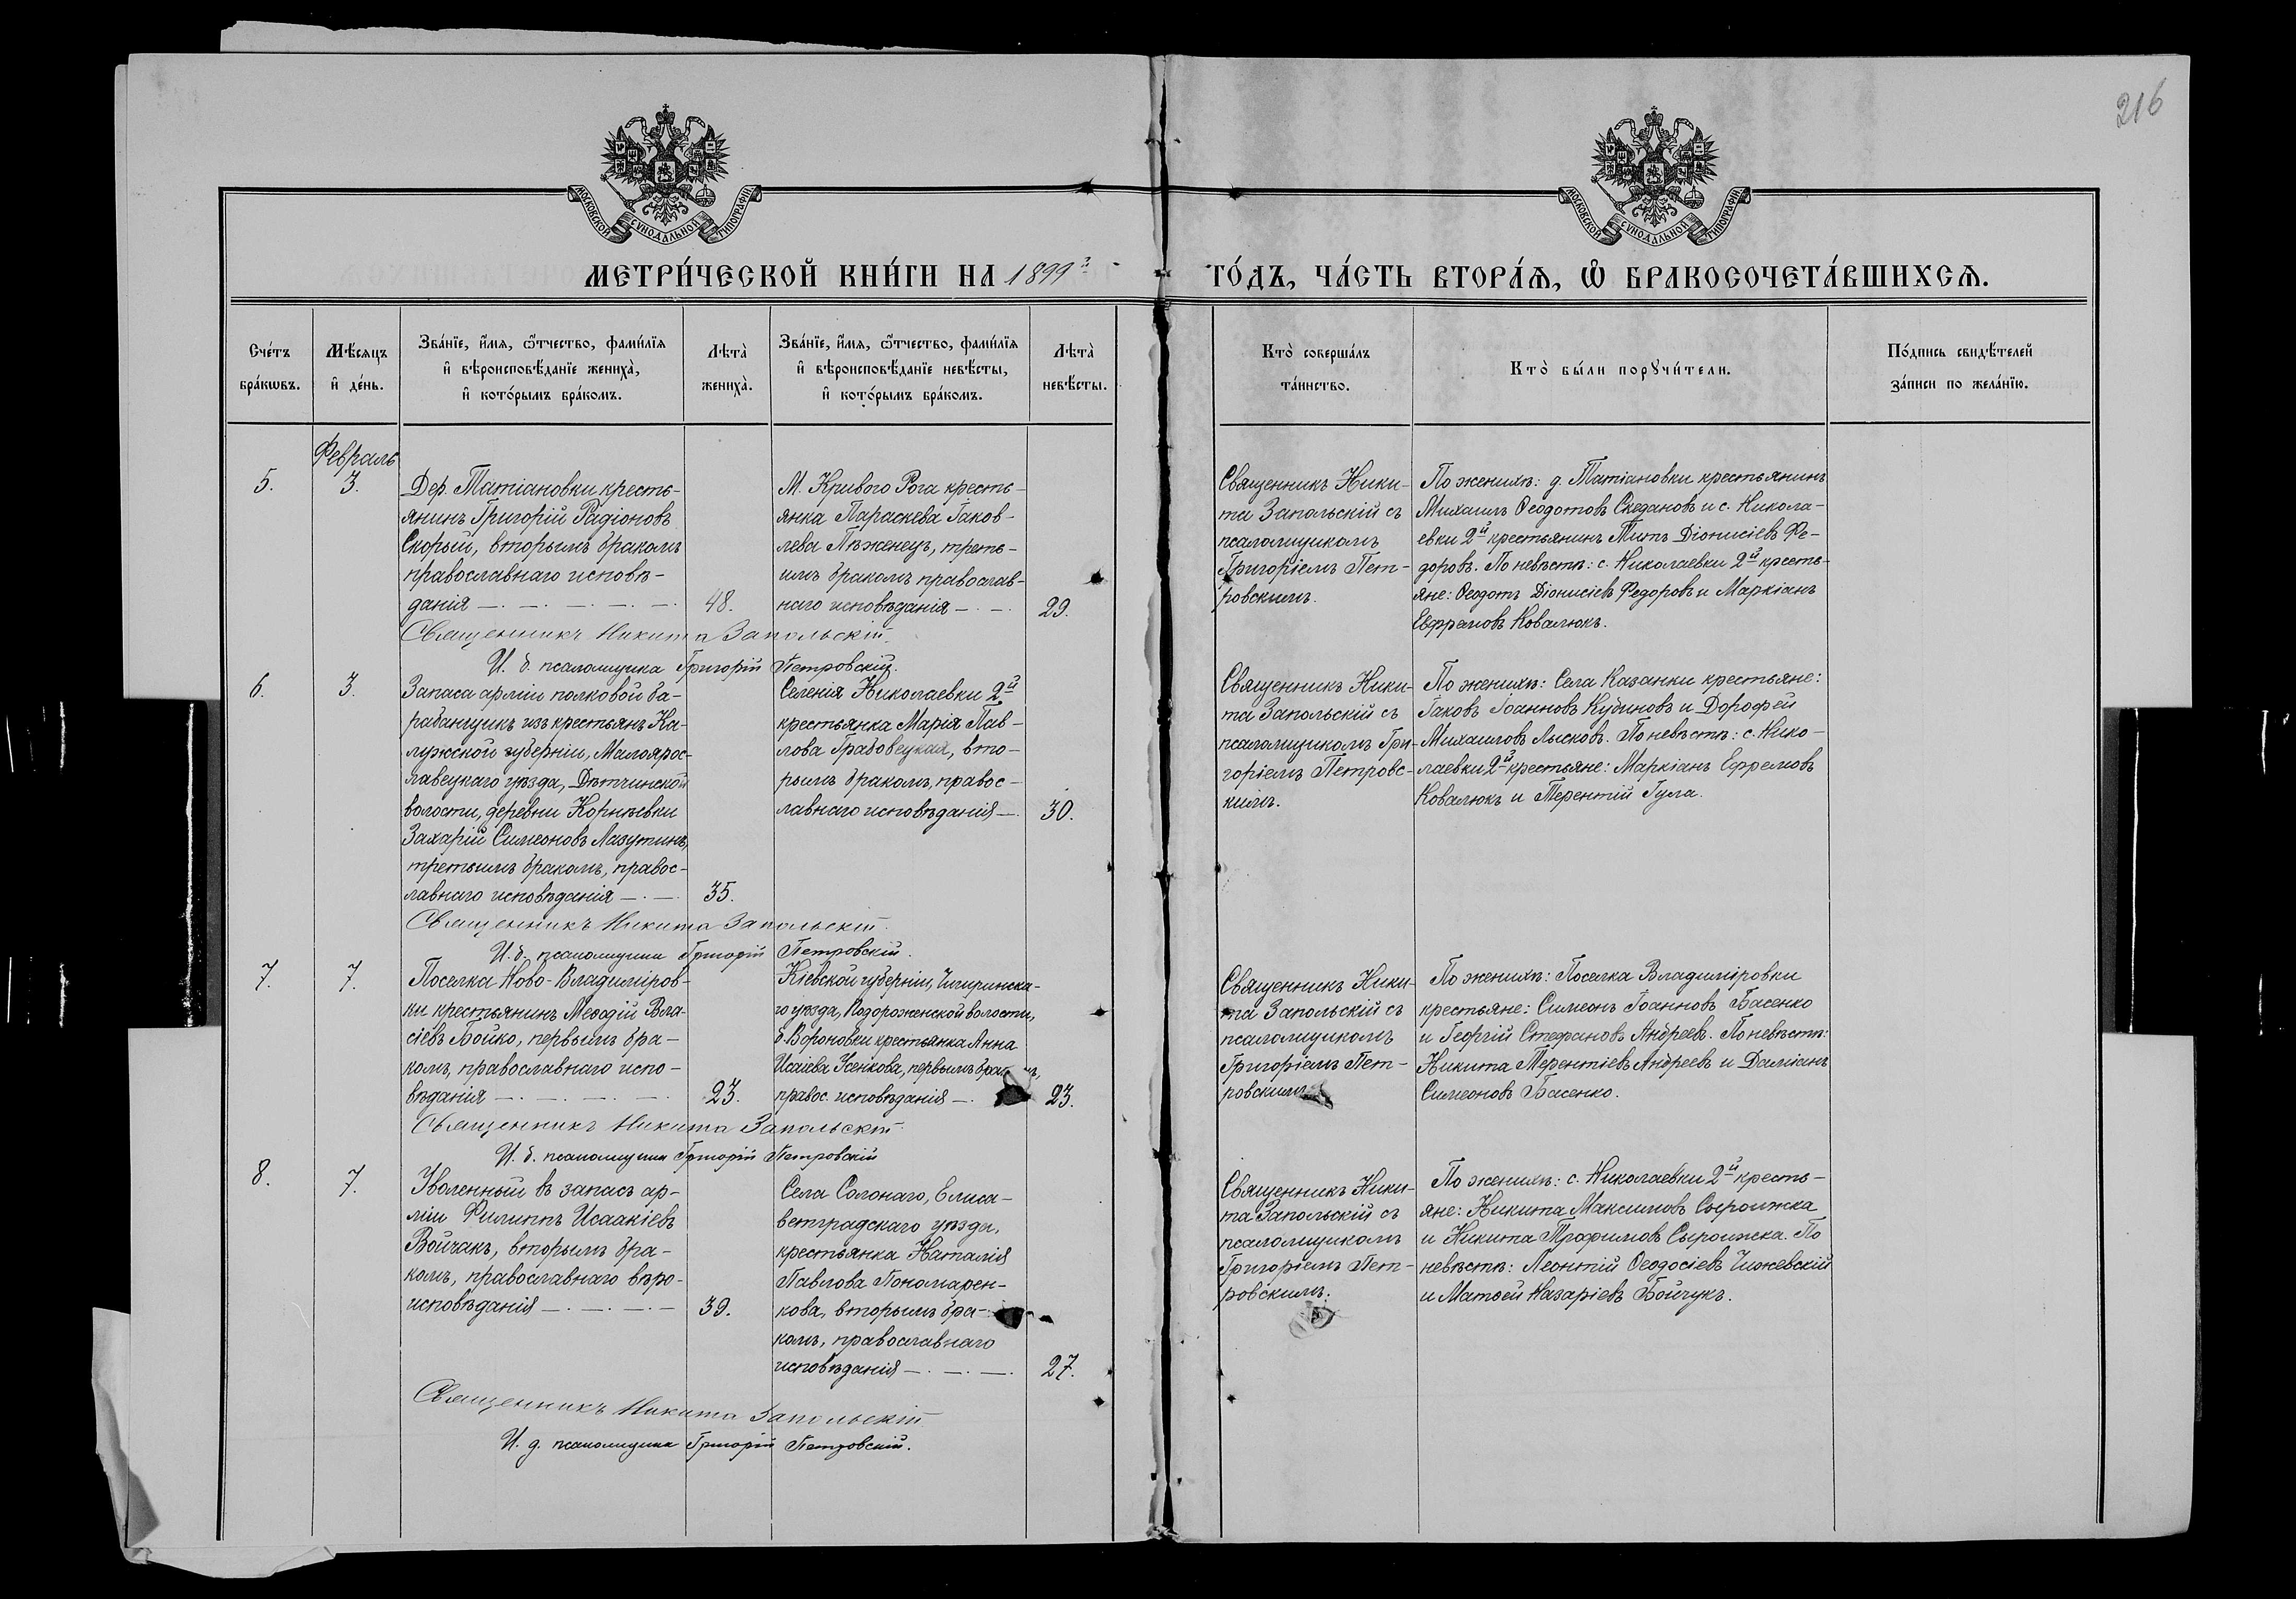 216
МОСКОВСКОЙ СУНОДАЛЬНОЙ ТИПОГРАФІИ
МОСКОВСКОЙ СУНОДАЛЬНОЙ ТИПОГРАФІИ
МЕТРИ́ЧЕСКОЙ КНИ́ГИ НА 1899й
ГО́ДЪ, ЧА́СТЬ ВТОРА́Ѧ, Ѽ БРАКОСОЧЕТА́ВШИХСѦ.
Сче́тъ
бра́кѡвъ.
Мѣ́сяцъ
и҆ де́нь.
Зва́нїе, и҆́мѧ, ѻ҆́тчество, фами́лїѧ
и҆ вѣроисповѣ́данїе жениха̀,
и҆ кото́рымъ бра́комъ.
Лѣта̀
жениха̀.
Зва́нїе, и҆́мѧ, ѻ҆́тчество, фами́лїѧ
и҆ вѣроисповѣ́данїе невѣ́сты,
и҆ кото́рымъ бра́комъ.
Лѣта̀
невѣ́сты.
Кто̀ соверша́лъ
та́инство.
Кто̀ бы́ли порꙋчи́тели.
По́дпись свидѣ́телей
за́писи по жела́нїю.
Февраль
5.
3.
Дер. Татіановки кресть-
янинъ Григорій Радіоновъ
Скорый, вторымъ бракомъ
православнаго исповѣ-
данія
48.
М. Кривого Рога кресть-
янка Параскева Іаков-
лева Пѣженецъ, треть-
имъ бракомъ православ-
наго исповѣданія
29.
Священникъ Ники-
та Запольскій съ
псаломщикомъ
Григоріемъ Пет-
ровскимъ.
По женихѣ: д. Татіановки крестьянинъ
Михаилъ Ѳеодотовъ Скедановъ и с. Никола-
евки 2й крестьянинъ Титъ Діонисіевъ Фе-
доровъ. По невѣстѣ: с. Николаевки 2й кресть-
яне: Ѳеодотъ Діонисіевъ Федоровъ и Маркіанъ
Ефремовъ Ковалюкъ.
Священникъ Никита Запольскій.
И. д. псаломщика Григорій Петровскій.
6.
3.
Запаса арміи полковой ба-
рабанщикъ изъ крестьянъ Ка-
лужской губерніи, Малоярос-
лавецкаго уѣзда, Дѣтчинской
волости, деревни Корнѣевки
Захарій Симеоновъ Лазутинъ,
третьимъ бракомъ, правос-
лавнаго исповѣданія
35.
Селенія Николаевки 2й
крестьянка Марія Пав-
лова Грабовецкая, вто-
рымъ бракомъ, правос-
лавнаго исповѣданія
30.
Священникъ Ники-
та Запольскій съ
псаломщикомъ Гри-
горіемъ Петровс-
кимъ.
По женихѣ: Села Казанки крестьяне:
Іаковъ Іоанновъ Кудиновъ и Дорофей
Михаиловъ Лысковъ. По невѣстѣ: с. Нико-
лаевки 2й крестьяне: Маркіанъ Ефремовъ
Ковалюкъ и Терентій Гула.
Священникъ Никита Запольскій.
И. д. псаломщика Григорій Петровскій.
7.
7.
Поселка Ново-Владиміров-
ки крестьянинъ Меѳодій Вла-
сіевъ Бойко, первымъ бра-
комъ, православнаго испо-
вѣданія
23.
Кіевской губерніи, Чигиринска-
го уѣзда, Подорожненской волости,
д. Вороновки крестьянка Анна
Исаіева Усенкова, первымъ
правос. исповѣданія
23.
Священникъ Ники-
та Запольскій съ
псаломщикомъ
Григоріемъ Пет-
ровскимъ
По женихѣ: Поселка Владиміровки
крестьяне: Симеонъ Іоанновъ Басенко
и Георгій Стефановъ Андреевъ. По невѣстѣ:
Никита Терентіевъ Андреевъ и Даміанъ
Симеоновъ Басенко.
Священникъ Никита Запольскій.
И. д. псаломщика Григорій Петровскій
8.
7.
Уволенный въ запасъ ар-
міи Филиппъ Исаакіевъ
Войчакъ, вторымъ бра-
комъ, православнаго вѣро-
исповѣданія
39.
Села Солонаго, Елиса-
ветградскаго уѣзда,
крестьянка Наталія
Павлова Пономарен-
кова, вторымъ бра-
комъ, православнаго
исповѣданія
27.
Священникъ Ники-
та Запольскій съ
псаломщикомъ
Григоріемъ Пет-
ровскимъ.
По женихѣ: с. Николаевки 2й кресть-
яне: Никита Максимовъ Сыроижка
и Никита Трофимовъ Сыроижка. По
невѣстѣ: Леонтій Ѳеодосіевъ Чижевскій
и Матѳей Назаріевъ Бойчукъ.
Священникъ Никита Запольскій
И. д. псаломщика Григорій Петровскій.